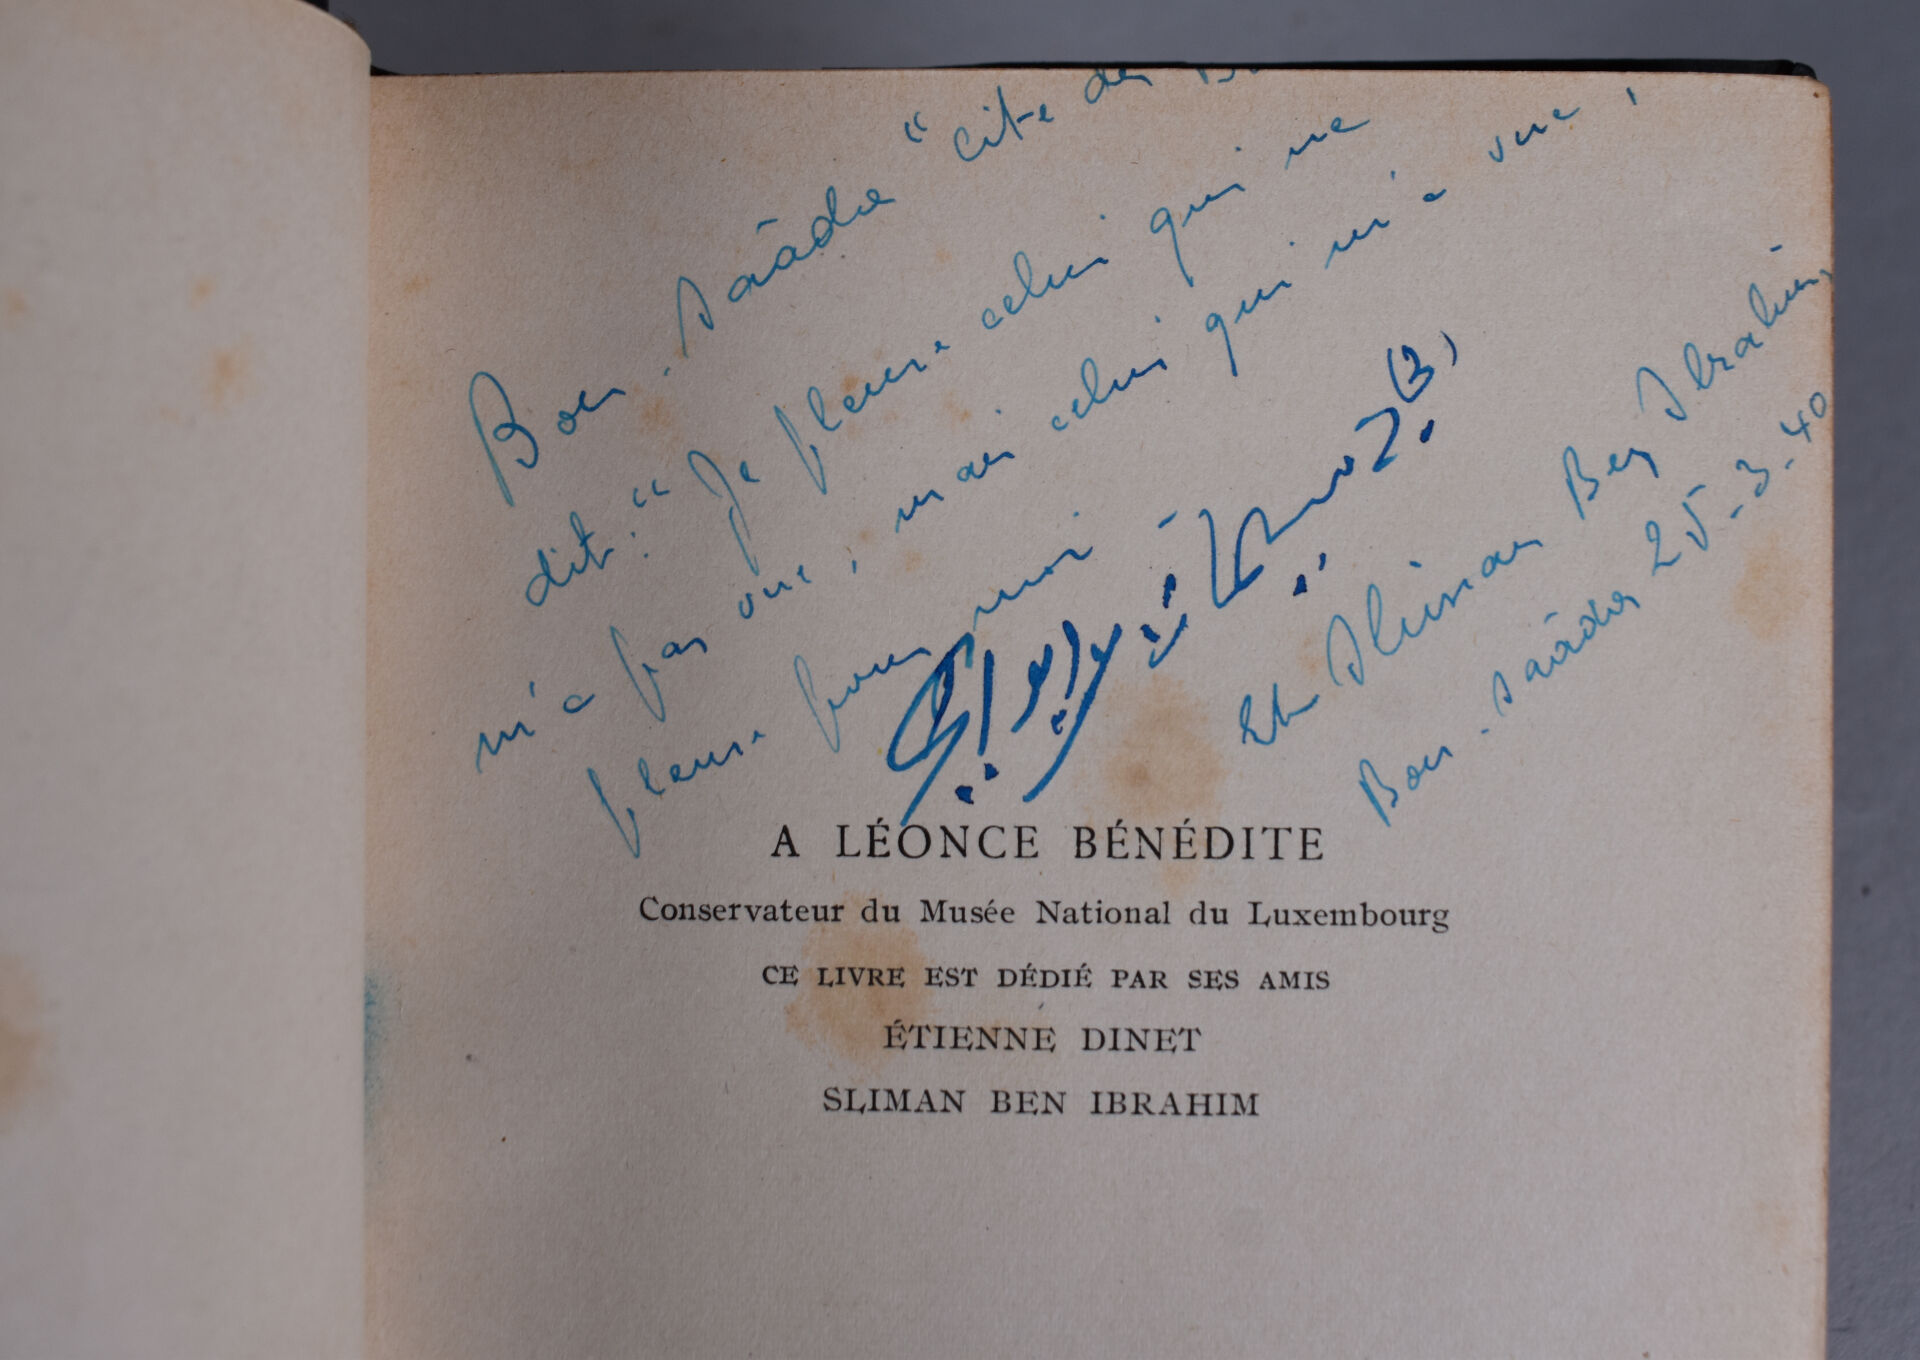 Bou-Saâda "cité du
dit: "Je pleure celui qui ne
m'a pas vue, mais celui qui m'a vue,
pleure pour moi
Sliman Ben Ibrahim
Bou-Saâda 25-3-40
A LÉONCE BÉNÉDITE
Conservateur du Musée National du Luxembourg
CE LIVRE EST DÉDIÉ PAR SES AMIS
ÉTIENNE DINET
SLIMAN BEN IBRAHIM